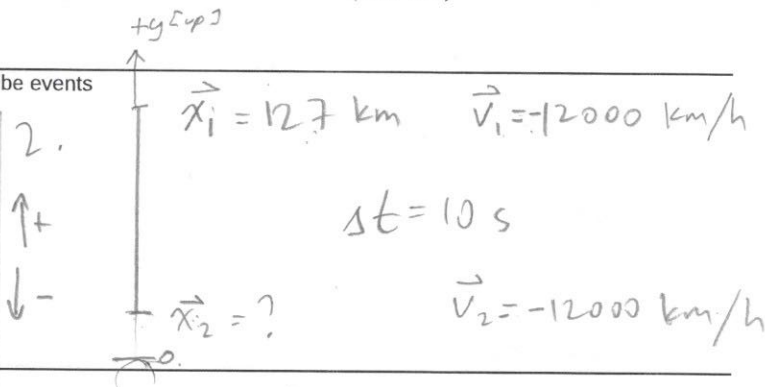 +y [up]
be events
2.
x⃗₁ = 127 km
v⃗₁ = -12000 km/h
↑+
Δt = 10 s
↓-
x⃗₂ = ?
v⃗₂ = -12000 km/h
0.